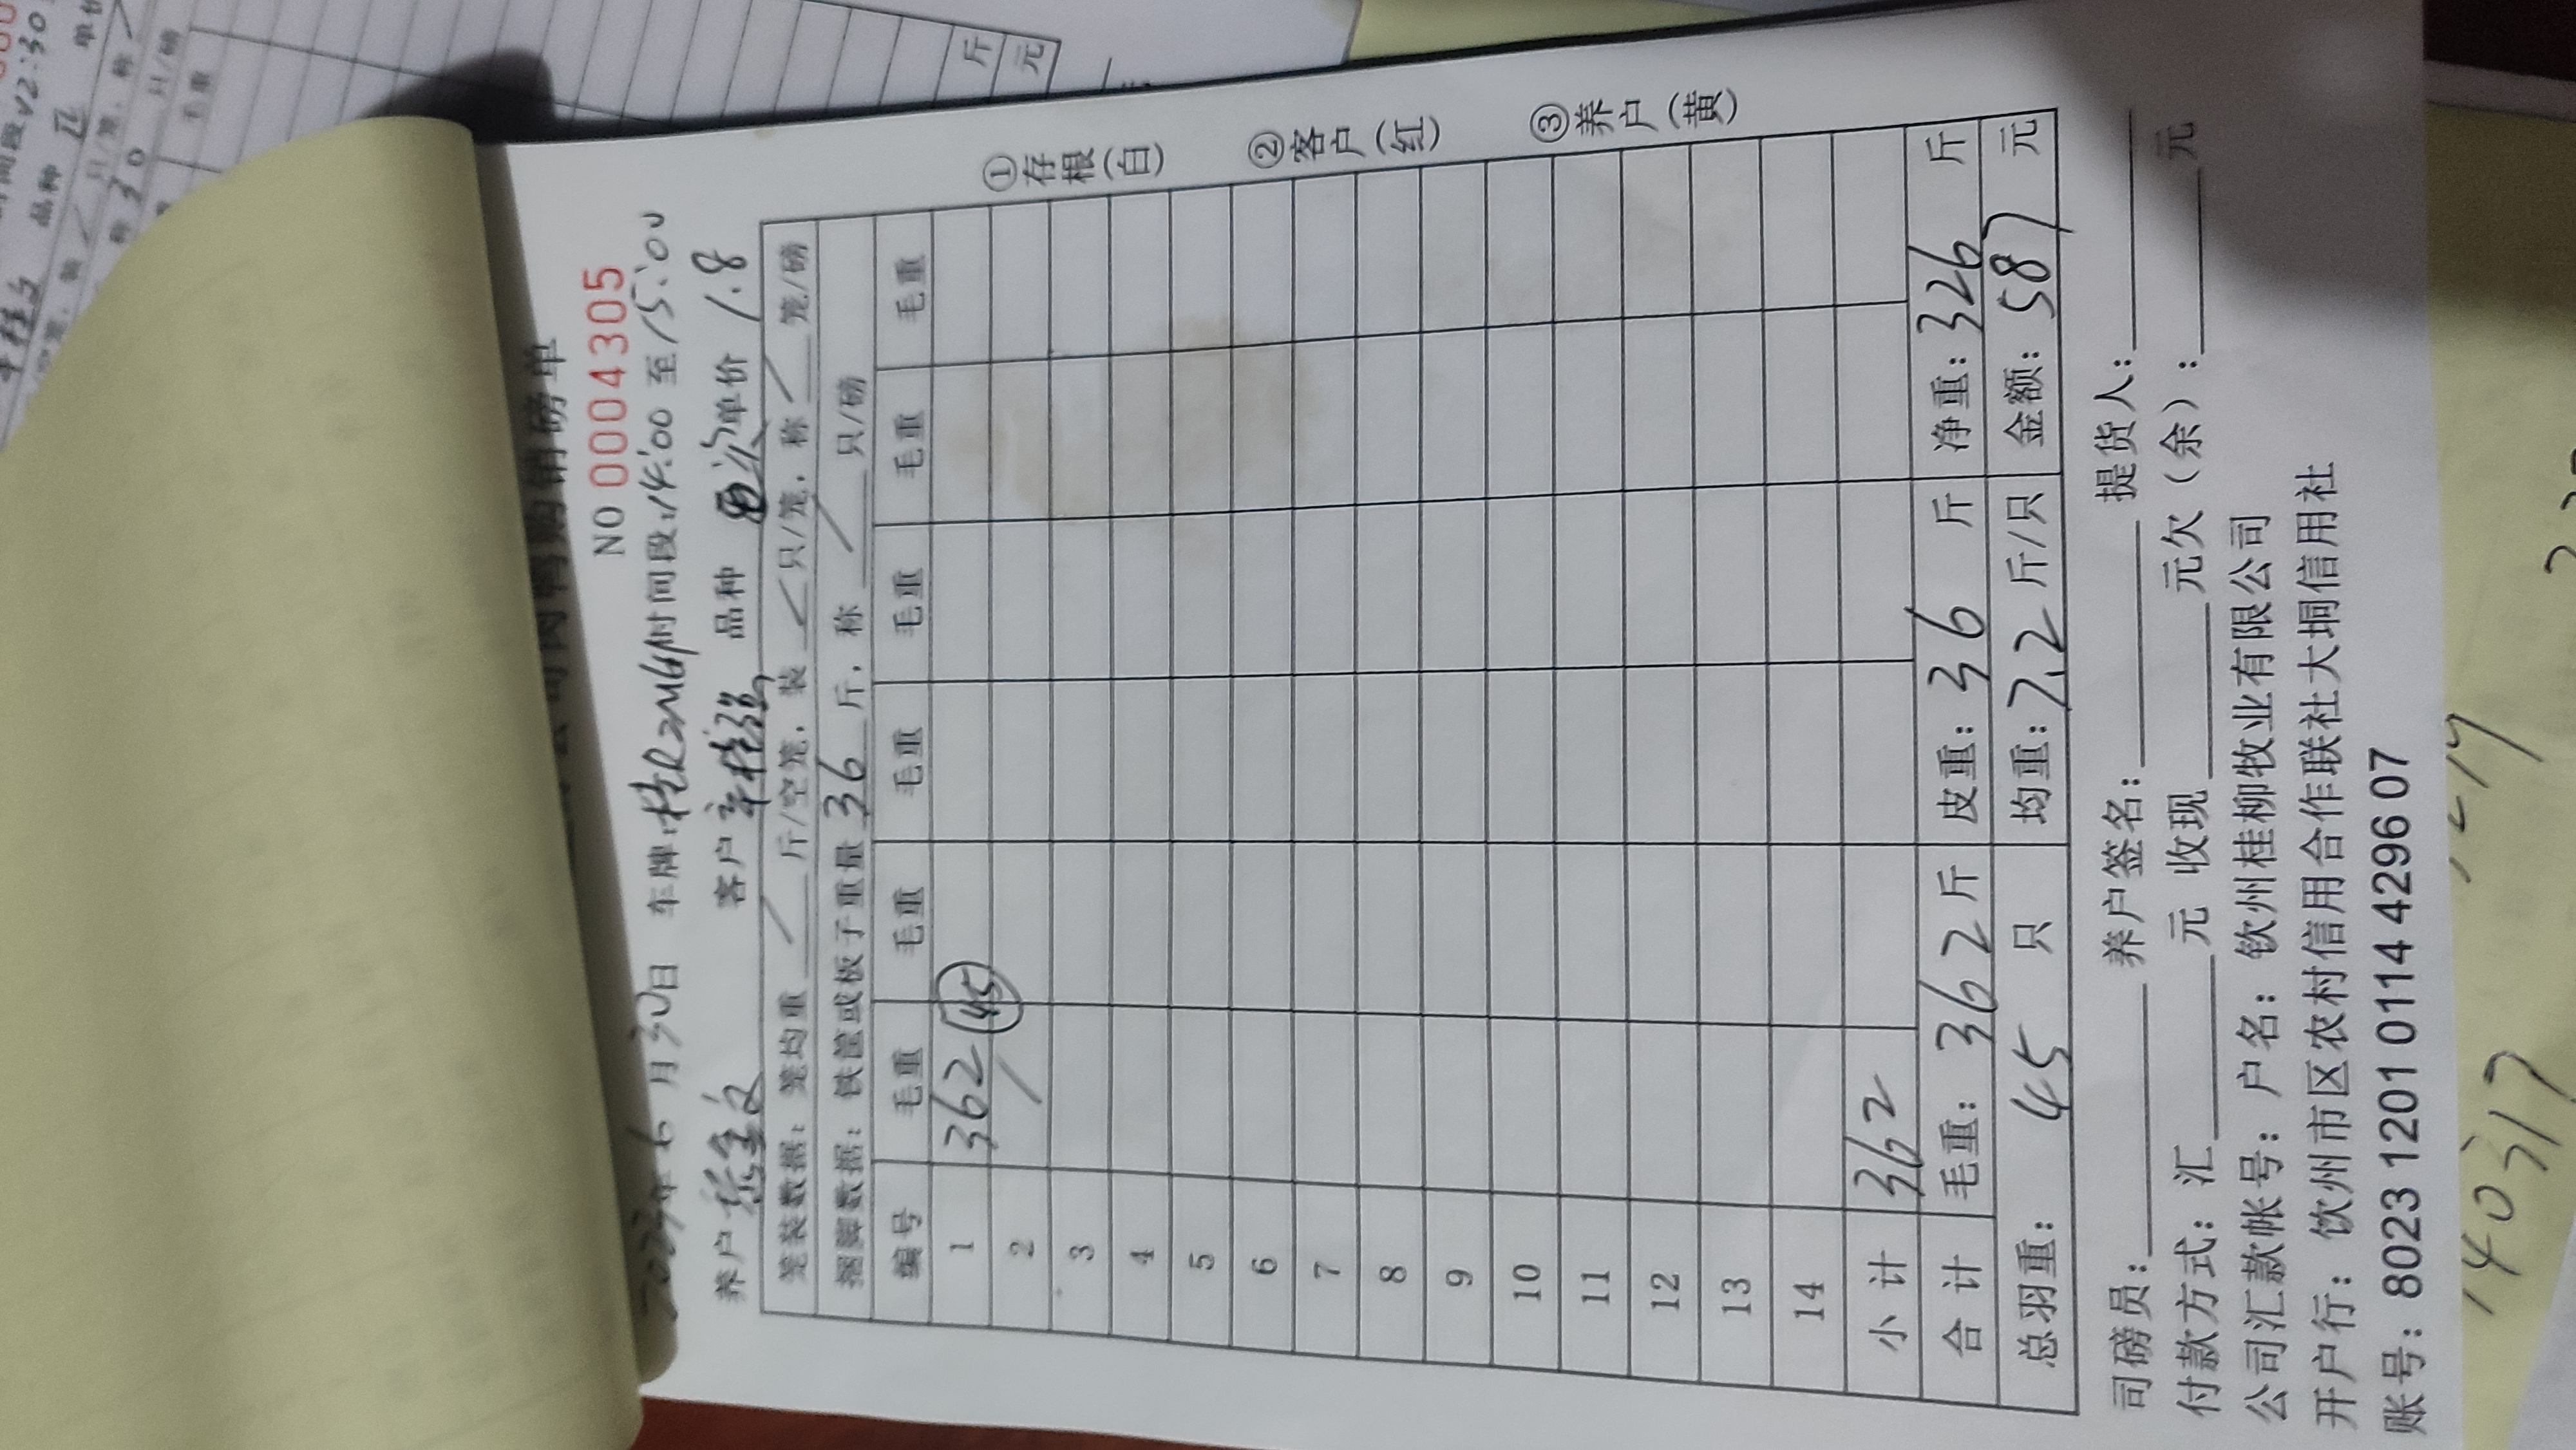 购销磅单
NO 0004305
年6月30日 车牌: 时间段:14:00至15:00
养户 客户 品种 单价 1.8
笼装数据: 笼均重 / 斤/空笼, 装 / 只/笼, 称 / 笼/磅
捆脚数据: 铁筐或板子重量 36 斤, 称 / 只/磅
编号 毛重 毛重 毛重 毛重 毛重 毛重
1 362 (45)
2
3
4
5
6
7
8
9
10
11
12
13
14
小计 362
合计 毛重: 362斤 皮重: 36斤 净重: 326斤
总羽重: 45 只 均重: 7.2斤/只 金额: 587元
司磅员: 养户签名: 提货人:
付款方式: 汇 元 收现 元欠(余): 元
公司汇款帐号: 户名: 钦州桂柳牧业有限公司
开户行: 钦州市区农村信用合作联社大垌信用社
账号: 8023 1201 0114 4296 07
①存根(白) ②客户(红) ③养户(黄)